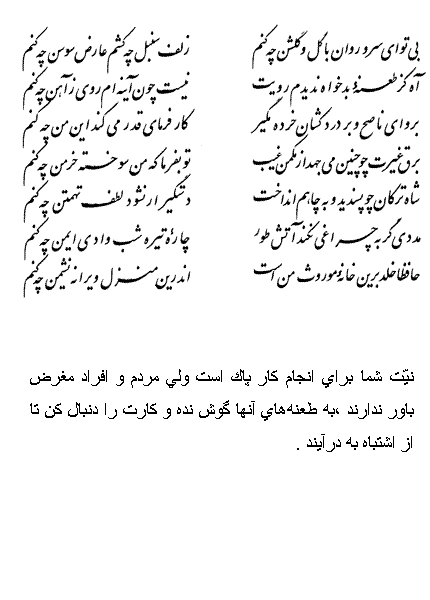 بی تو ای سرو روان با گل و گلشن چه کنم زلف سنبل چه کشم عارض سوسن چه کنم
آه کز طعنهٔ بدخواه ندیدم رویت نیست چون آینه ام روی ز آهن چه کنم
برو ای ناصح و بر دردکشان خرده مگیر کارفرمای قدر می کند این من چه کنم
برق غیرت چو چنین می جهد از مکمن غیب تو بفرما که من سوخته خرمن چه کنم
شاه ترکان چو پسندید و به چاهم انداخت دستگیر ار نشود لطف تهمتن چه کنم
مددی گر به چراغی نکند آتش طور چارهٔ تیره شب وادی ایمن چه کنم
حافظا خلد برین خانهٔ موروث من است اندرین منزل ویرانه نشیمن چه کنم
نيّت شما براي انجام كار پاك است ولي مردم و افراد مغرض
باور ندارند ،به طعنه‌هاي آنها گوش نده و كارت را دنبال كن تا
از اشتباه به درآيند .